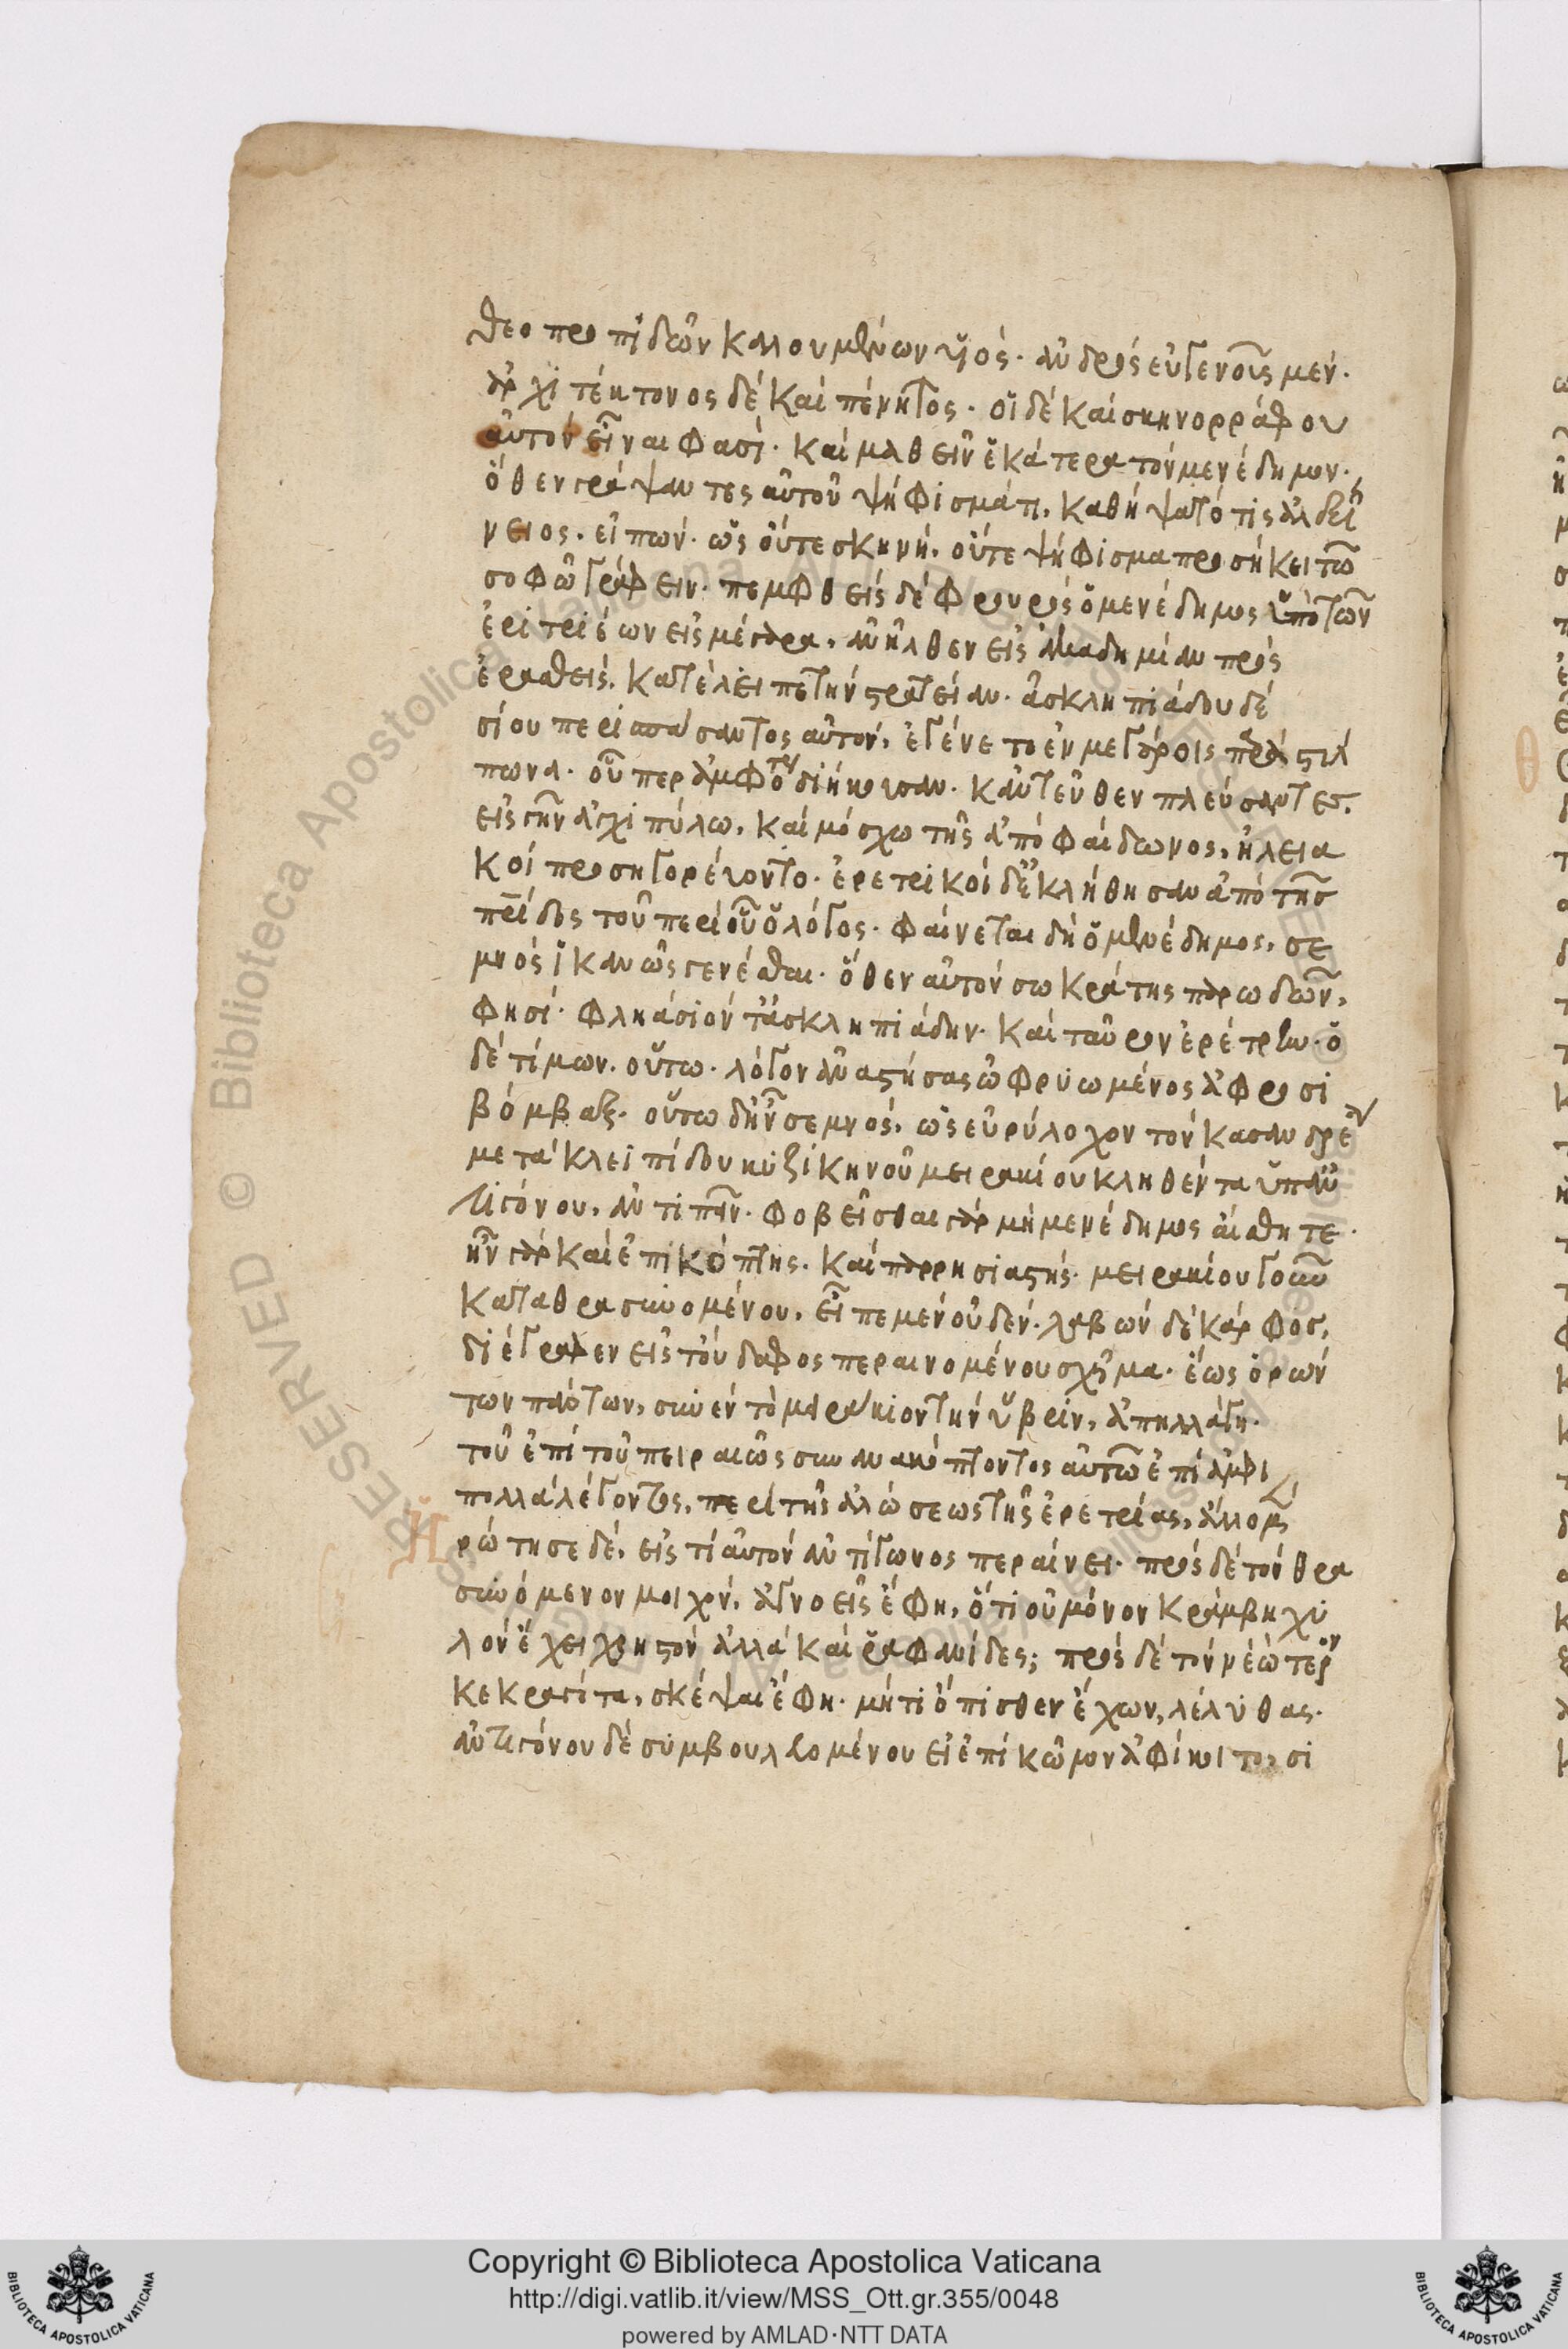 θεοπροπιδῶν καλουμένων υἱός· ἀνδρὸς εὐγενοῦς μέν·
ἀρχιτέκτονος δὲ καὶ πένητος· οἱ δὲ καὶ σκηνορράφον
αὐτὸν εἶναι φασὶ· καὶ μαθεῖν ἑκάτερα τὸν μενέδημον·
ὅθεν γράψαντος αὐτοῦ ψήφισμά τι, καθήψατό τις ἀλεξί
νειος, εἰπών· ὡς οὔτε σκηνὴν, οὔτε ψήφισμα προσήκει τῶ
σοφῶ γράφειν· πεμφθεὶς δὲ φρουρὸς ὁ μενέδημος ὑπὸ τῶν
ἐριτριέων εἰς μέγαρα, ἀνῆλθεν εἰς ἀκαδημίαν πρὸς
καὶ θηραθεὶς, κατέλειπε τὴν στρατείαν· ἀσκληπιάδου δὲ
σίου περισπάσαντος αὐτὸν, ἐγένετο ἐν μεγάροις παρὰ στίλ
πωνα· οὗπερ ἀμφότεροι διήκουσαν· κἀντεῦθεν πλεύσαντες
εἰς ἦλιν ἀγχιπύλω, καὶ μόσχω τῆς ἀπὸ φαίδωνος, ἠλεια
κοὶ προσηγορεύοντο· ἐρετρικοὶ δὲ ἐκλήθησαν ἀπὸ τῆς
πατρίδος τοῦ περὶ οὗ ὁ λόγος· φαίνεται δὴ ὁ μενέδημος, σε
μνὸς ἱκανῶς γενέσθαι· ὅθεν αὐτὸν σωκράτης παρωδῶν,
φησί· φλιάσιόν τ᾽ ἀσκληπιάδην· καὶ ταῦρον ἐρέτριον· ὁ
δὲ τίμων, οὕτω· λόγον ἀναστήσας ὠφρυωμένος ἀφροσι
βόμβαξ· οὕτω δ᾽ ἦν σεμνὸς, ὡς εὐρύλοχον τὸν κασανδρέα
μετὰ κλειπίδου κυζικηνοῦ μειρακίου κληθέντα ὑπ᾽ ἀν
τιγόνου, ἀντιπεῖν· φοβεῖσθαι γὰρ μὴ μενέδημος αἴσθητε·
ἦν γὰρ καὶ ἐπικόπτης· καὶ παρρησιαστής· μειρακίου γοῦν
καταθρασυνομένου, εἶπε μὲν οὐδέν· λαβὼν δὲ κάρφος,
διέγραφεν εἰς τοὔδαφος περαινομένου σχῆμα· ἕως ὁρών
των πάντων, συνὲν τὸ μειράκιον τὴν ὕβριν, ἀπηλλάγη·
τοῦ ἐπὶ τοῦ πειραιῶς συνανακόπτοντος αὐτῶ ἐπὶ
πολλὰ λέγοντος, περὶ τῆς ἁλώσεως τῆς ἐρετρίας,
Ἠρώτησε δὲ, εἰς τί αὐτὸν ἀντίγωνος περαίνει· πρὸς δὲ τὸν θρα
συνόμενον μοιχὸν, ἀγνοεῖς ἔφη, ὅτι οὐ μόνον κράμβη χυ
λὸν ἔχει χρηστὸν ἀλλὰ καὶ ῥαφανίδες; πρὸς δὲ τὸν νεώτερον
κεκραγότα, σκέψαι ἔφη· μή τι ὄπισθεν ἔχων, λέληθας·
ἀντιγόνου δὲ συμβουλευομένου εἰ ἐπὶ κῶμον ἀφίκοιτο, σι
Copyright © Biblioteca Apostolica Vaticana
http://digi.vatlib.it/view/MSS_Ott.gr.355/0048
powered by AMLAD·NTT DATA